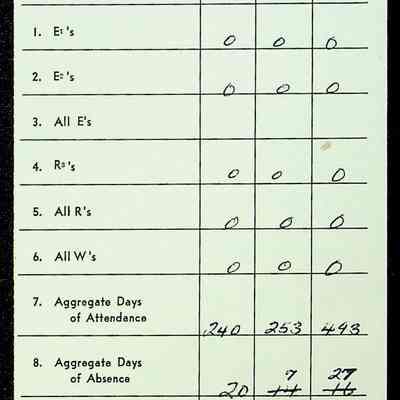 1. E¹'s 0 0 0
2. E²'s 0 0 0
3. All E's
4. R³'s 0 0 0
5. All R's 0 0 0
6. All W's 0 0 0
7. Aggregate Days
of Attendance 240 253 493
8. Aggregate Days 7 27
of Absence 20 14 16